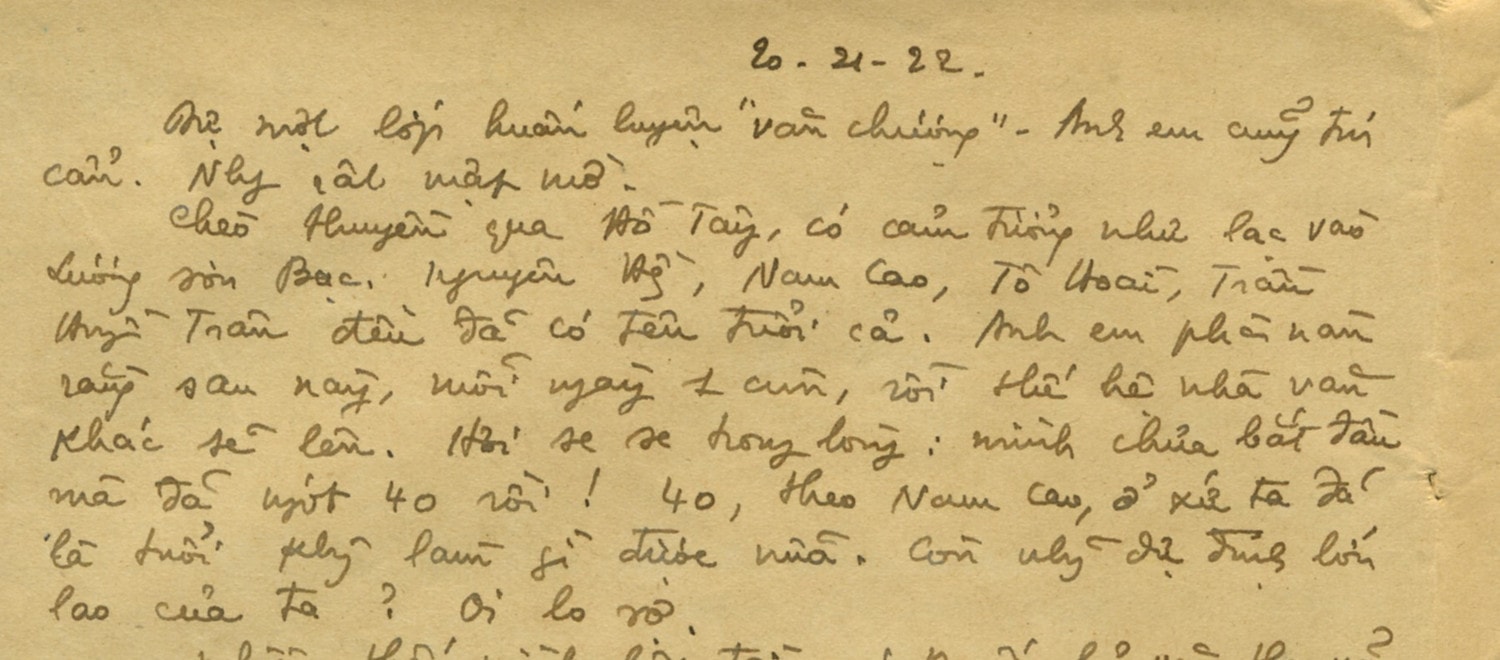 20 - 21 - 22.
Dự một lớp huấn luyện "văn chương" - Anh em cũng
cẩn. Nhg rất mập mờ.
Chèo thuyền qua Hồ Tây, có cảm tưởng như lạc vào
Lương sơn Bạc. Nguyên Hg, Nam Cao, Tô Hoài, Trần
Huyền Trân đều đã có tên tuổi cả. Anh em phàn nàn
rằng sau này, mỗi ngày 1 cùn, rồi thế hệ nhà văn
khác sẽ lên. Hơi se se trong lòng: mình chưa bắt đầu
mà đã ngót 40 rồi! 40, theo Nam Cao, ở xứ ta đã
là tuổi khg làm gì được nữa. Còn nhg dự định lớn
lao của ta? Ôi lo sợ.